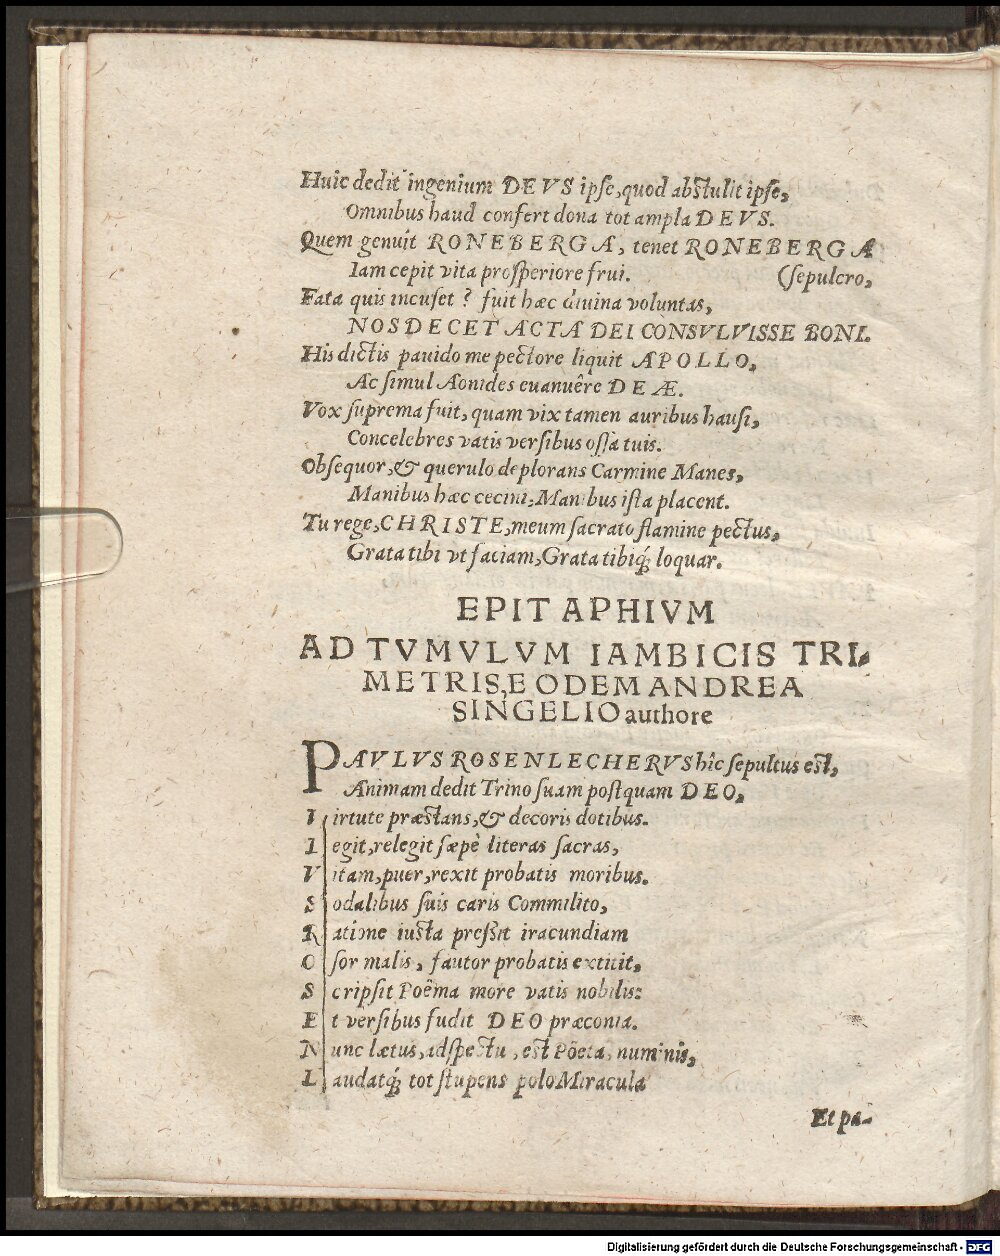 Huic dedit ingenium DEVS ipſe, quod abſtulit ipſe,
Omnibus haud confert dona tot ampla DEVS.
Quem genuit RONEBERGA, tenet RONEBERGA
Iam cepit vita proſperiore frui. (ſepulcro,
Fata quis incuſet? fuit hæc diuina voluntas,
NOS DECET ACTA DEI CONSVLVISSE BONI.
His dictis pauido me pectore liquit APOLLO,
Ac ſimul Aonides euanuêre DEÆ.
Vox ſuprema fuit, quam vix tamen auribus hauſi,
Concelebres vatis verſibus oſſa tuis.
Obſequor, & querulo deplorans Carmine Manes,
Manibus hæc cecini, Manibus iſta placent.
Tu rege, CHRISTE, meum ſacrato flamine pectus,
Grata tibi vt faciam, Grata tibiq́; loquar.
EPITAPHIVM
AD TVMVLVM IAMBICIS TRI-
METRIS, EODEM ANDREA
SINGELIO authore
PAVLVS ROSENLECHERVS hîc ſepultus eſt,
Animam dedit Trino ſuam poſtquam DEO,
V irtute præſtans, & decoris dotibus.
L egit, relegit ſæpè literas ſacras,
V itam, puer, rexit probatis moribus.
S odalibus ſuis caris Commilito,
R atione iuſta preſſit iracundiam
O ſor malis, fautor probatis extitit,
S cripſit Poêma more vatis nobilis:
E t verſibus fudit DEO præconia.
N unc lætus, adſpectu, eſt Pöeta, numinis,
L audatq́; tot ſtupens polo Miracula
Et pa-
Digitalisierung gefördert durch die Deutsche Forschungsgemeinschaft - DFG